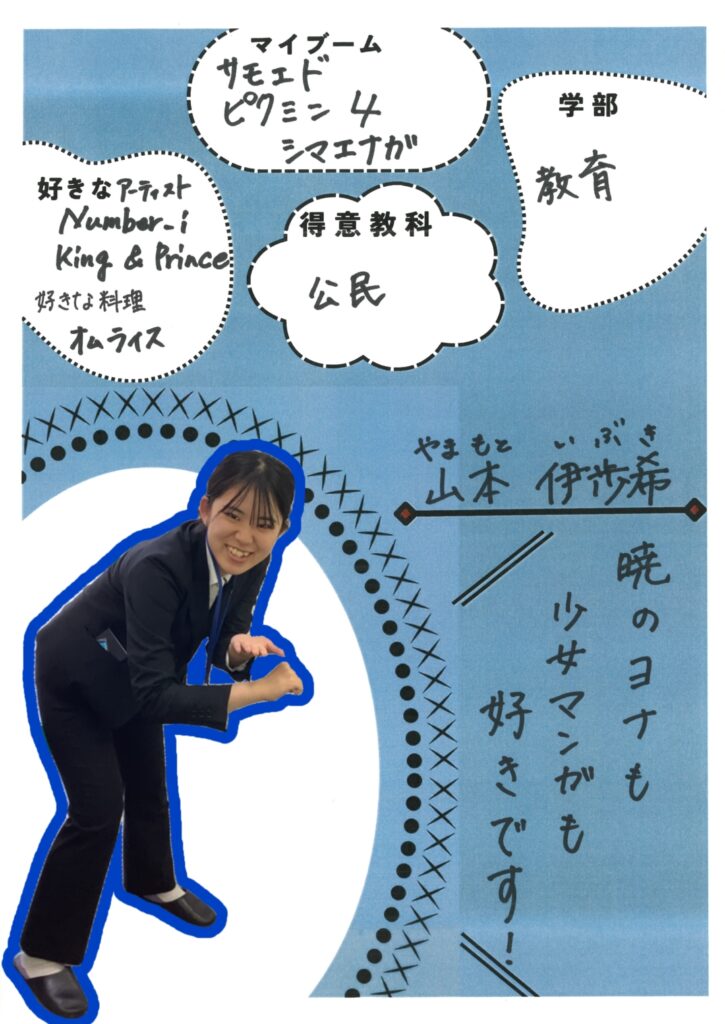 マイブーム
サモエド
ピクミン 4
シマエナガ
学部
教育
好きなアーティスト
Number_i
King & Prince
好きな料理
オムライス
得意教科
公民
やまもと いぶき
山本 伊歩希
暁のヨナも
少女マンガも
好きです!